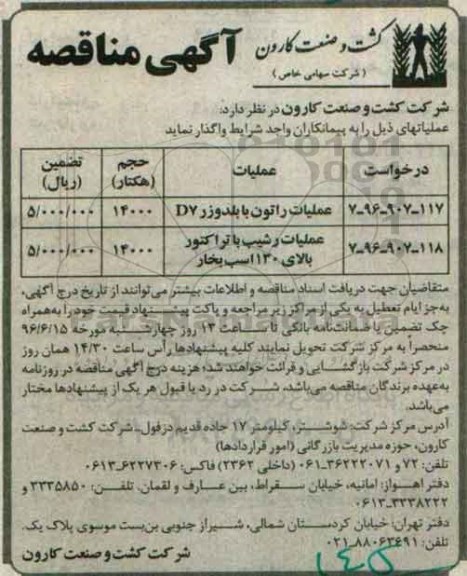 کشت و صنعت کارون
(شرکت سهامی خاص)
آگهی مناقصه
شرکت کشت و صنعت کارون در نظر دارد:
عملیاتهای ذیل را به پیمانکاران واجد شرایط واگذار نماید
درخواست عملیات حجم (هکتار) تضمین (ریال)
۷-۹۶-۹۰۷-۱۱۷ عملیات راتون با بلدوزر D۷ ۱۴۰۰۰ ۵/۰۰۰/۰۰۰
۷-۹۶-۹۰۷-۱۱۸ عملیات رشیب با تراکتور بالای ۱۳۰ اسب بخار ۱۴۰۰۰ ۵/۰۰۰/۰۰۰
متقاضیان جهت دریافت اسناد مناقصه و اطلاعات بیشتر می‌توانند از تاریخ درج آگهی،
به‌جز ایام تعطیل به یکی از مراکز زیر مراجعه و پاکت پیشنهاد قیمت خود را به‌همراه
چک تضمین یا ضمانت‌نامه بانکی تا ساعت ۱۳ روز چهارشنبه مورخه ۹۶/۶/۱۵
منحصراً به مرکز شرکت تحویل نمایند کلیه پیشنهادها رأس ساعت ۱۴/۳۰ همان روز
در مرکز شرکت بازگشایی و قرائت خواهند شد؛ هزینه درج آگهی مناقصه در روزنامه
به‌عهده برندگان مناقصه می‌باشد، شرکت در رد یا قبول هر یک از پیشنهادها مختار
می‌باشد.
آدرس مرکز شرکت: شوشتر، کیلومتر ۱۷ جاده قدیم دزفول، شرکت کشت و صنعت
کارون، حوزه مدیریت بازرگانی (امور قراردادها)
تلفن: ۷۲ و ۰۶۱-۳۶۲۲۲۰۷۱ (داخلی ۲۳۶۲) فاکس: ۰۶۱۳-۶۲۲۷۳۰۶
دفتر اهواز: امانیه، خیابان سقراط، بین عارف و لقمان. تلفن: ۳۳۳۵۸۵۰ و
۰۶۱۳-۳۳۳۸۲۲۲
دفتر تهران: خیابان کردستان شمالی، شیراز جنوبی بن‌بست موسوی پلاک یک.
تلفن: ۰۲۱-۸۸۰۶۳۶۹۱
شرکت کشت و صنعت کارون